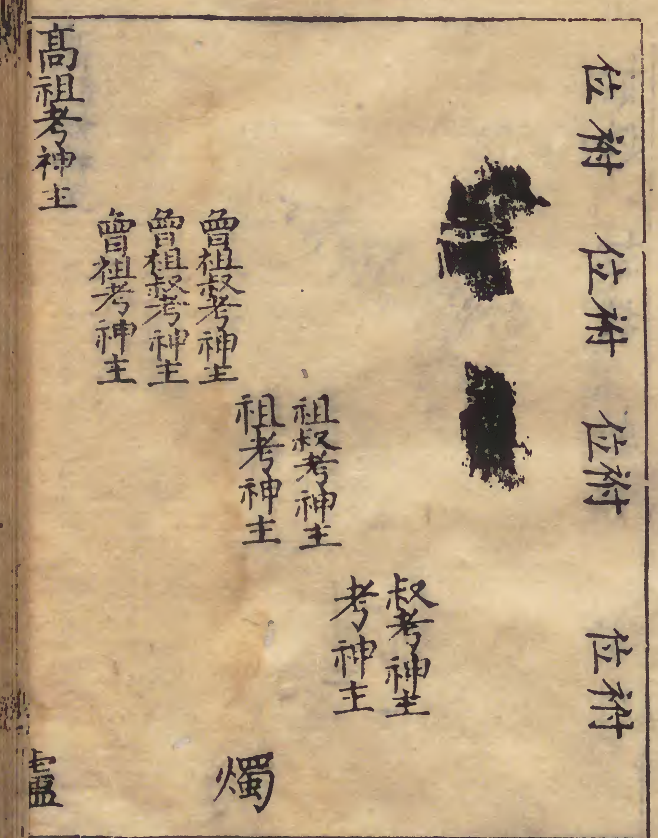 位祔
位祔
位祔
位祔
叔考神主
考神主
祖叔考神主
祖考神主
曾祖叔考神主
曾祖叔考神主
曾祖考神主
髙祖考神主
燭